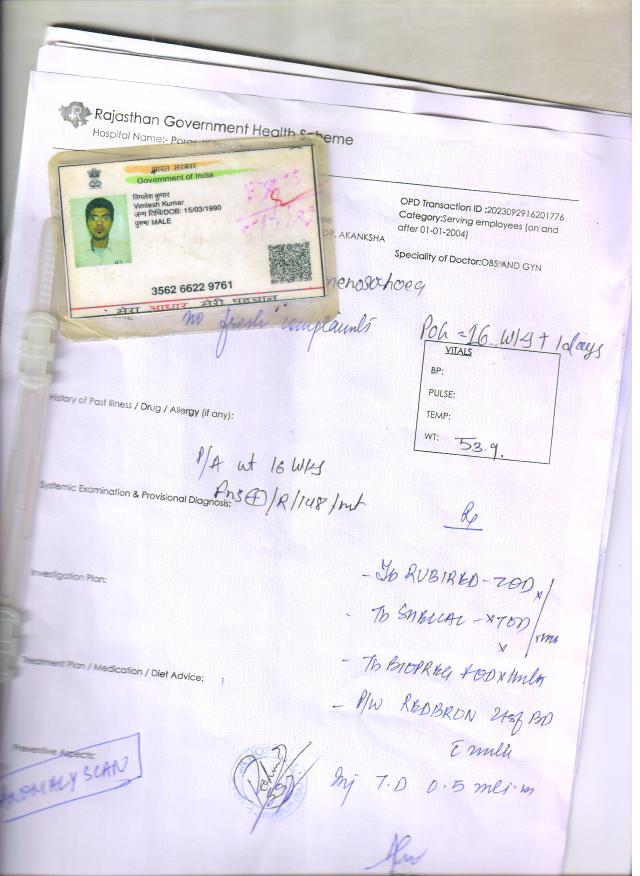 Rajasthan Government Health Scheme
Hospital Name:-
भारत सरकार
Government of India
विमलेश कुमार
Vimlesh Kumar
जन्म तिथि/DOB: 15/03/1990
पुरुष/ MALE
3562 6622 9761
मेरा आधार, मेरी पहचान
OPD Transaction ID :2023092916201776
Category:Serving employees (on and
after 01-01-2004)
DR. AKANKSHA
Speciality of Doctor:OBS AND GYN
no fresh complaints
POG = 16 wks + 1 days
VITALS
BP:
PULSE:
TEMP:
WT: 53.9
History of Past Illness / Drug / Allergy (if any):
P/A ut 16 wks
Systemic Examination & Provisional Diagnosis:
Rx
Investigation Plan:
- Tb RUBIRED
- Tb
Treatment Plan / Medication / Diet Advice:
- Tb
- P/w REDBRON 2tsf BD
c milk
Preventive Aspects:
ANOMALY SCAN
Inj T.D 0.5 ml i.m